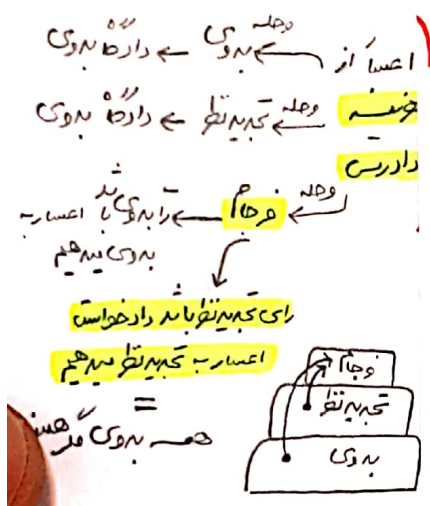 وحله
اعسار از ← بدوی ← دادگاه بدوی
هزینه
وحله
← تجدیدنظر ← دادگاه بدوی
دادرسی
وحله
← فرجام ← رأی بدوی باشد اعسار به
بدوی میدهیم
رأی تجدیدنظر باشد دادخواست
اعسار به تجدیدنظر میدهیم
=
همه بدوی
فرجام
تجدیدنظر
بدوی